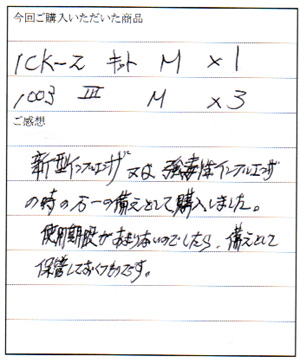 今回ご購入いただいた商品
1CK-2 キット M ×1
1003 III M ×3
ご感想
新型インフルエンザ又は強毒性インフルエンザ
の時の万一の備えとして購入しました。
使用期限があまりないのでしたら、備えとして
保管しておくつもりです。